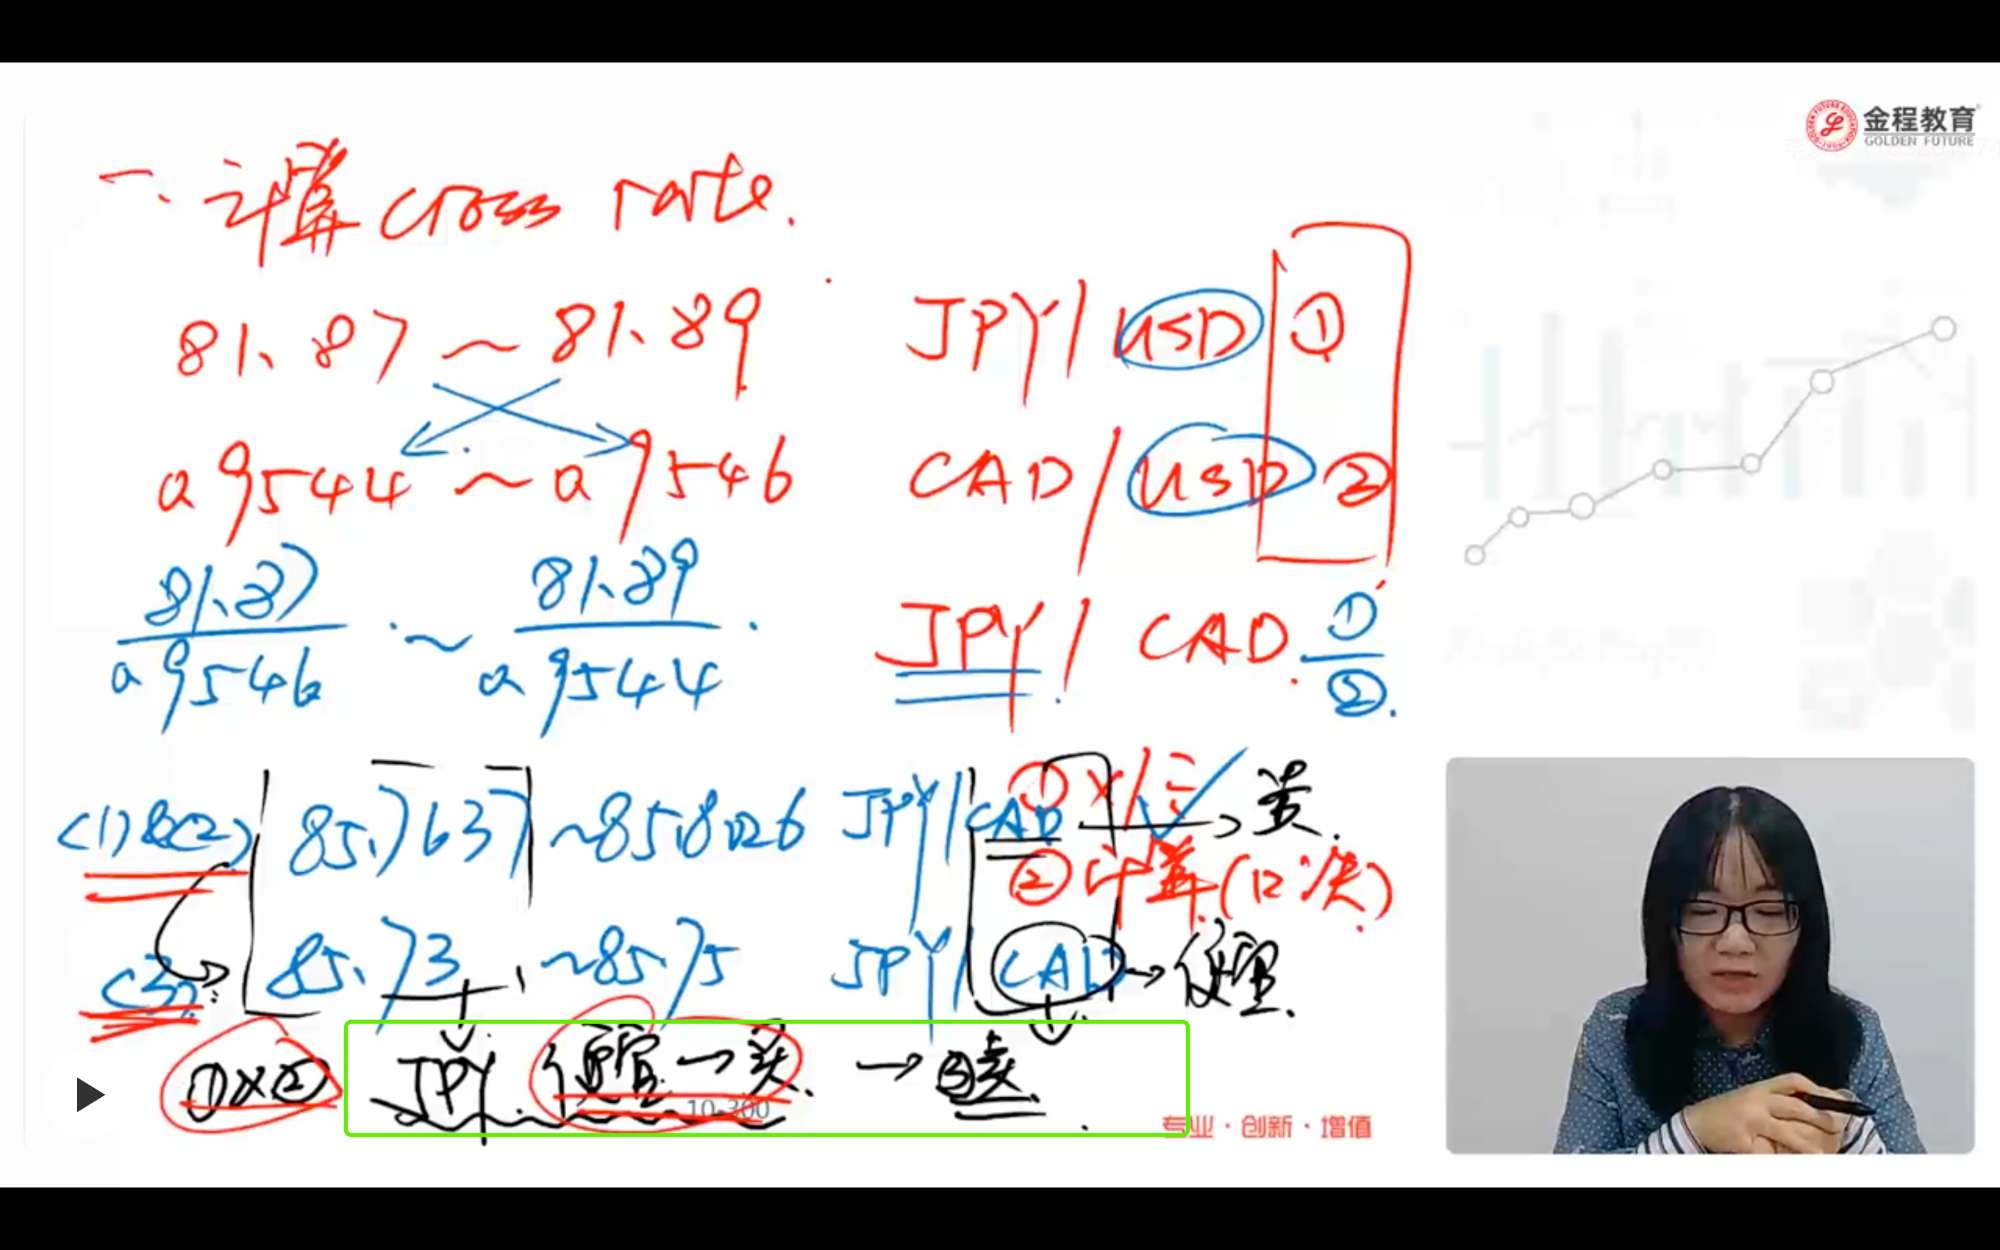 金程教育
GOLDEN FUTURE
一. 计算 cross rate.
81.87 ~ 81.89 JPY/USD ①
0.9544 ~ 0.9546 CAD/USD ②
81.87/0.9546 ~ 81.89/0.9544 JPY/CAD. ①/②
<1>&<2> 85.7637 ~85.8026 JPY/CAD → 贵.
① Y/三
② 计算 (口决)
<3>: 85.73 ~85.75 JPY/CAD → 便宜.
①×② JPY 便宜 → 买. → ③卖.
10-300
专业·创新·增值